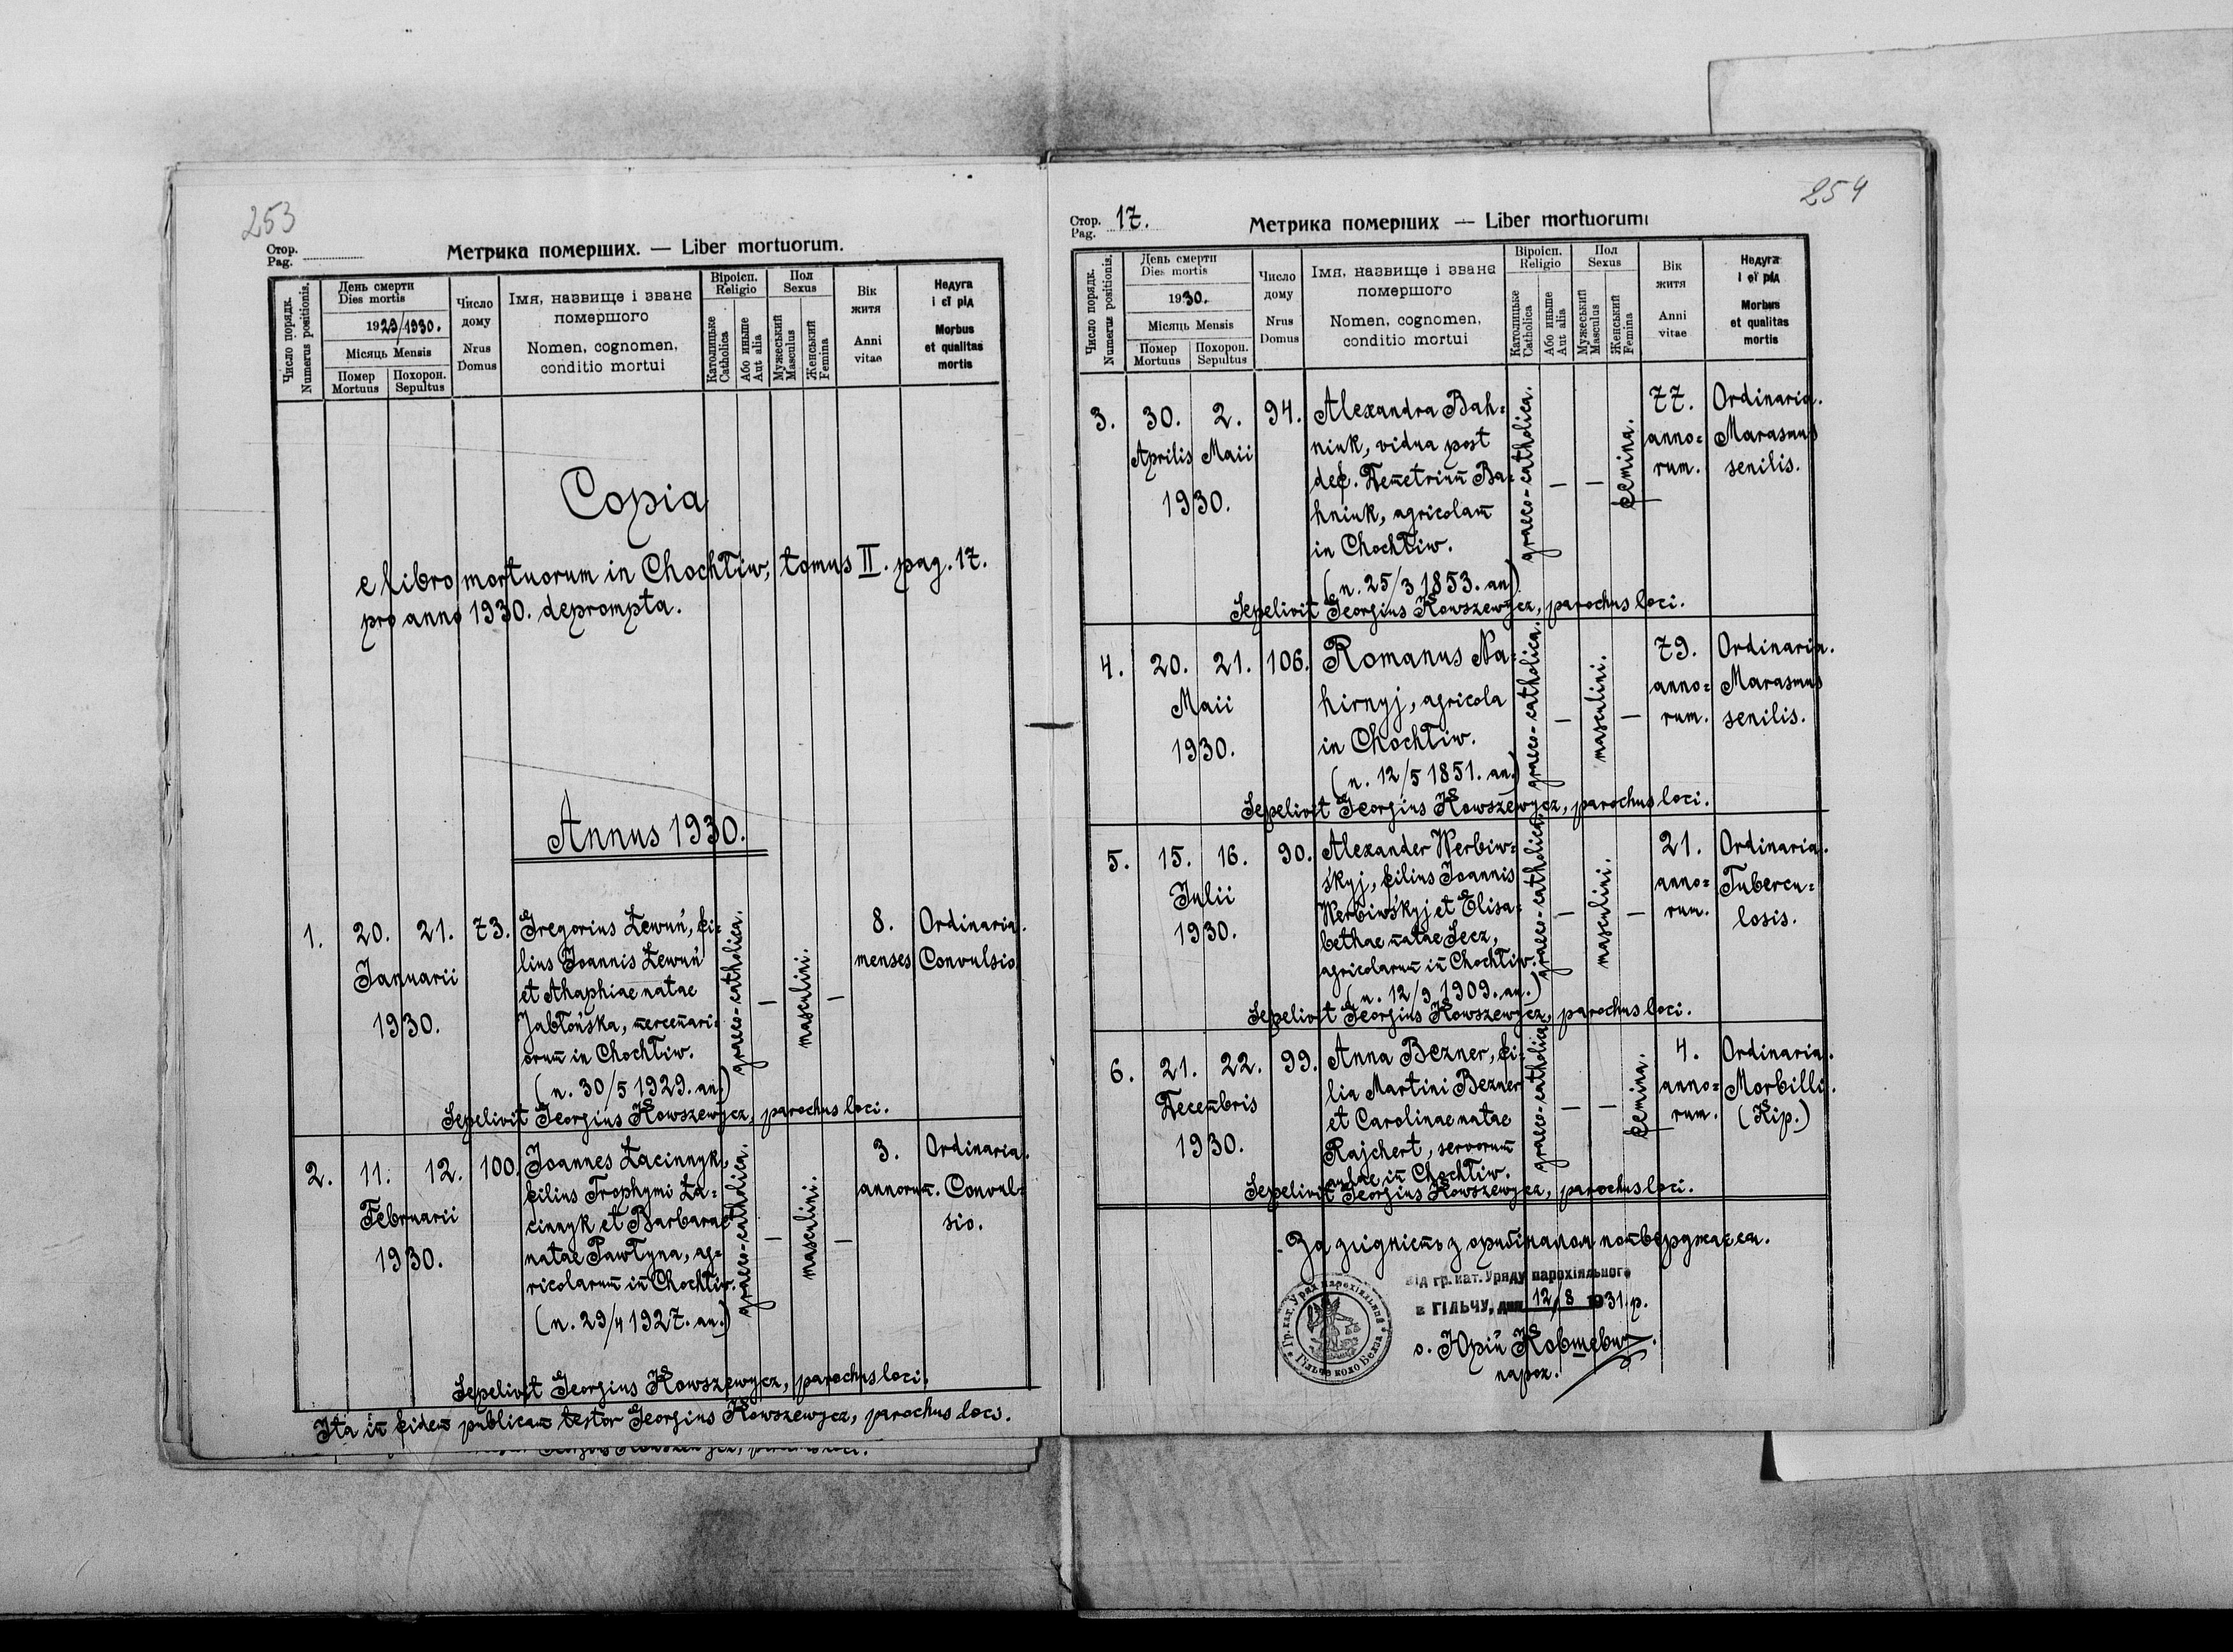 253
Стор.
Pag.
Метрика померших. — Liber mortuorum.
Число порядк.
Numerus positionis.
День смерти
Dies mortis
1929/1930.
Місяць Mensis
Помер
Mortuus
Похорон.
Sepultus
Число
дому
Nrus
Domus
Імя, назвище і зване
помершого
Nomen, cognomen,
conditio mortui
Віроісп.
Religio
Католицьке
Catholica
Або иньше
Aut alia
Пол
Sexus
Мужеський
Masculus
Женський
Femina
Вік
житя
Anni
vitae
Недуга
і єї рід
Morbus
et qualitas
mortis
Copia
e libro mortuorum in Chochłiw, tomus II. pag. 17.
pro anno 1930. deprompta.
Annus 1930.
1. 20. 21. 73. Gregorius Łewuń, fi= 8. Ordinaria.
lius Joannis Łewuń menses Convulsio
Januarii et Ahaphiae natae
1930. Jabłońska, mercenari=
orum in Chochłiw.
(n. 30/5 1929. an.)
graeco-catholica. — masculini. —
Sepelivit Georgius Kowszewycz, parochus loci.
2. 11. 12. 100. Joannes Łacinnyk, 3. Ordinaria.
filius Trophymi Ła= annorum. Convul=
Februarii cinnyk et Barbarae sio.
1930. natae Pawłyna, ag=
ricolarum in Chochłiw.
(n. 29/4 1927. an.)
graeco-catholica. — masculini. —
Sepelivit Georgius Kowszewycz, parochus loci.
Ita in fidem publicam testor Georgius Kowszewycz, parochus loci.
254
Стор.
Pag. 17.
Метрика померших — Liber mortuorum
Число порядк.
Numerus positionis.
День смерти
Dies mortis
1930.
Місяць Mensis
Помер
Mortuus
Похорон.
Sepultus
Число
дому
Nrus
Domus
Імя, назвище і зване
помершого
Nomen, cognomen,
conditio mortui
Віроісп.
Religio
Католицьке
Catholica
Або иньше
Aut alia
Пол
Sexus
Мужеський
Masculus
Женський
Femina
Вік
житя
Anni
vitae
Недуга
і єї рід
Morbus
et qualitas
mortis
3. 30. 2. 94. Alexandra Bah= 77. Ordinaria.
Aprilis Maii niuk, vidua post anno= Marasmus
1930. def. Demetrium Ba= rum. senilis.
hniuk, agricolam
in Chochłiw.
(n. 25/3 1853. an.)
graeco-catholica. — — femina.
Sepelivit Georgius Kowszewycz, parochus loci.
4. 20. 21. 106. Romanus Na= 79. Ordinaria.
Maii hirnyj, agricola anno= Marasmus
1930. in Chochłiw. rum. senilis.
(n. 12/5 1851. an.)
graeco-catholica. — masculini. —
Sepelivit Georgius Kowszewycz, parochus loci.
5. 15. 16. 90. Alexander Werbiw= 21. Ordinaria.
Julii śkyj, filius Joannis anno= Tubercu=
1930. Werbiwśkyj et Elisa= rum. losis.
bethae natae Secz,
agricolarum in Chochłiw.
(n. 12/9 1909. an.)
graeco-catholica. — masculini. —
Sepelivit Georgius Kowszewycz, parochus loci.
6. 21. 22. 99. Anna Bezner, fi= 4. Ordinaria.
Decembris lia Martini Bezner anno= Morbilli.
1930. et Carolinae natae rum. (Kip.)
Rajchert, servorum
aulae in Chochłiw.
graeco-catholica. — — femina.
Sepelivit Georgius Kowszewycz, parochus loci.
За згідність з оригіналом потверджаєся.
Від гр. кат. Уряду парохіяльного
в ГІЛЬЧУ, дня 12/8 1931 р.
о. Юрій Ковшевич.
парох.
Гр. кат. Уряд парохіяльний
Гільче коло Белза